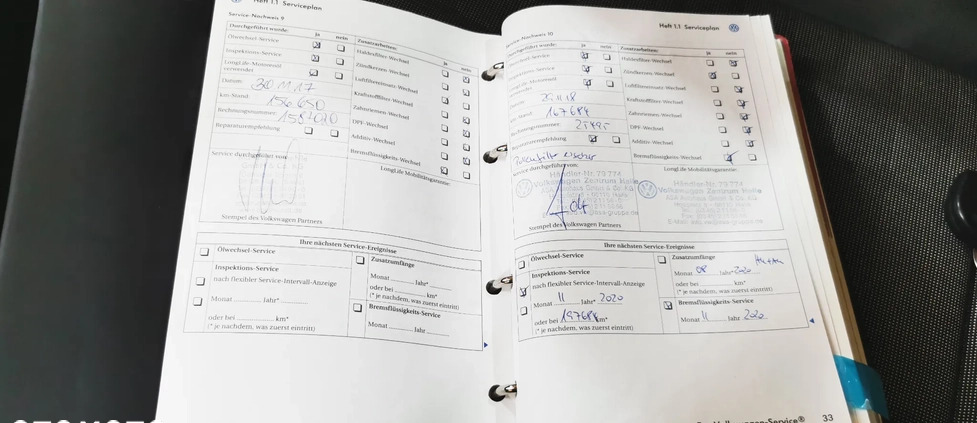 Heft 1.1 Serviceplan
Service-Nachweis 9
Durchgeführt wurde: ja nein
Ölwechsel-Service
Inspektions-Service
LongLife-Motorenöl
verwendet
Datum: 30.11.17
km-Stand: 156 650
Rechnungsnummer:
Reparaturempfehlung
Zusatzarbeiten: ja nein
Staubfilter-Wechsel
Zündkerzen-Wechsel
Luftfiltereinsatz-Wechsel
Kraftstofffilter-Wechsel
Zahnriemen-Wechsel
DPF-Wechsel
Additiv-Wechsel
Bremsflüssigkeits-Wechsel
Service durchgeführt von:
LongLife Mobilitätsgarantie:
Stempel des Volkswagen Partners
Ihre nächsten Service-Ereignisse
Ölwechsel-Service
Inspektions-Service
nach flexibler Service-Intervall-Anzeige
Monat Jahr*
oder bei km*
(* je nachdem, was zuerst eintritt)
Zusatzumfänge
Monat Jahr*
oder bei km*
(* je nachdem, was zuerst eintritt)
Bremsflüssigkeits-Service
Monat Jahr
Heft 1.1 Serviceplan
Service-Nachweis 10
Durchgeführt wurde: ja nein
Ölwechsel-Service
Inspektions-Service
LongLife-Motorenöl
verwendet
Datum:
km-Stand: 167684
Rechnungsnummer:
Reparaturempfehlung
Zusatzarbeiten: ja nein
Zündkerzen-Wechsel
Luftfiltereinsatz-Wechsel
Kraftstofffilter-Wechsel
Zahnriemen-Wechsel
DPF-Wechsel
Additiv-Wechsel
Bremsflüssigkeits-Wechsel
Service durchgeführt von:
LongLife Mobilitätsgarantie:
Händler-Nr. 79 774
Volkswagen Zentrum Halle
Händler-Nr. 79 774
Volkswagen Zentrum Halle
Stempel des Volkswagen Partners
Ihre nächsten Service-Ereignisse
Ölwechsel-Service
Inspektions-Service
nach flexibler Service-Intervall-Anzeige
Monat 11 Jahr* 2020
oder bei 197684 km*
(* je nachdem, was zuerst eintritt)
Zusatzumfänge
Monat 08 Jahr* 2020
oder bei km*
(* je nachdem, was zuerst eintritt)
Bremsflüssigkeits-Service
Monat 11 Jahr 2020
Volkswagen-Service® 33